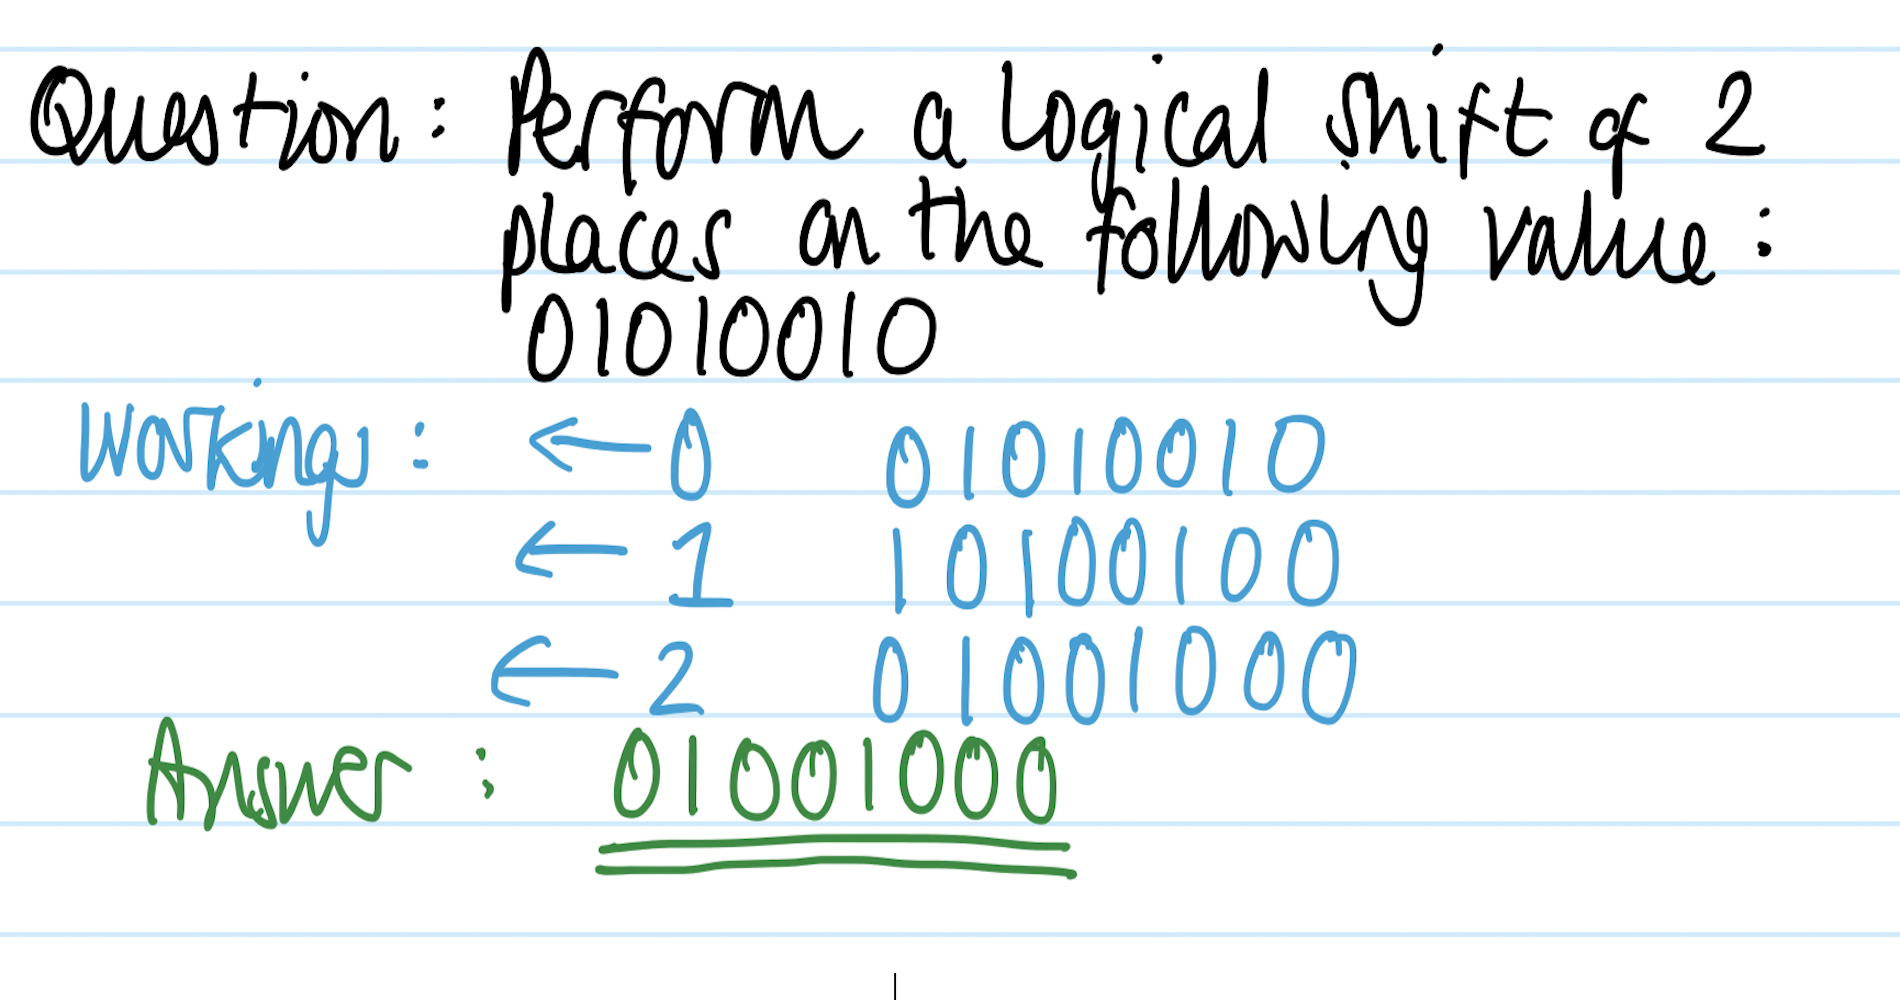 Question: Perform a logical shift of 2
places on the following value:
01010010
Workings: ← 0 01010010
← 1 10100100
← 2 01001000
Answer: 01001000